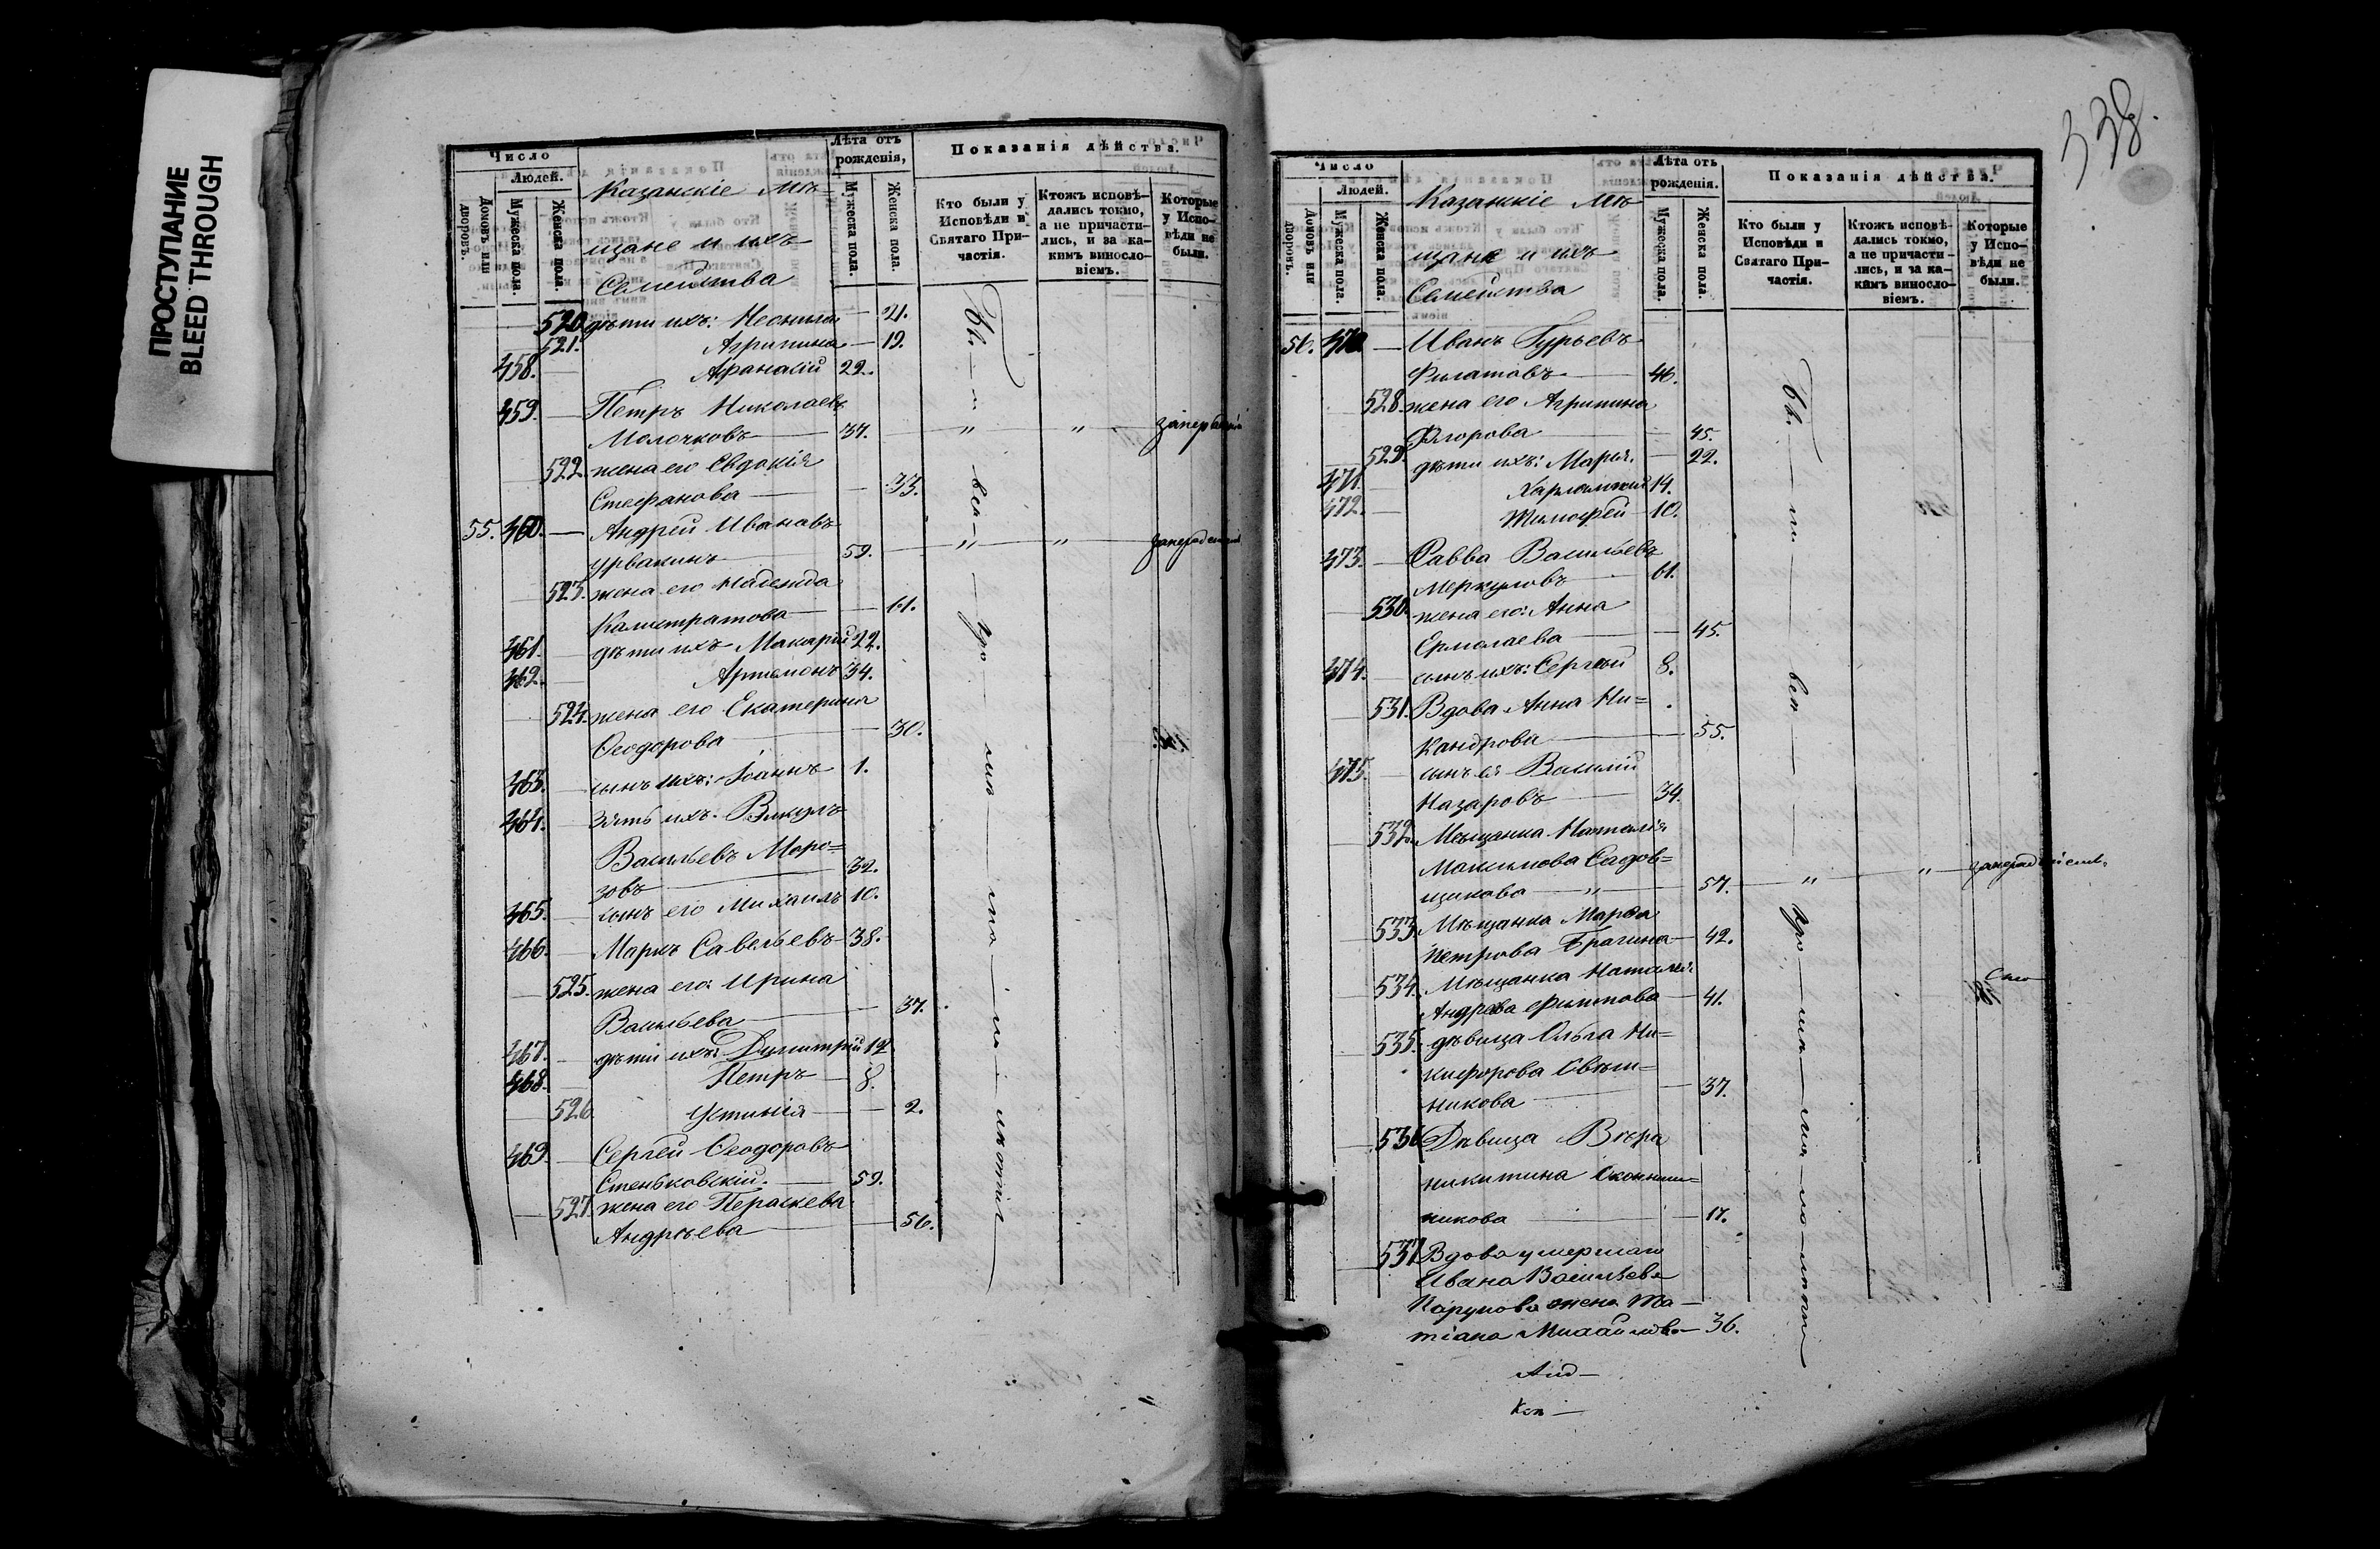 ПРОСТУПАНИЕ
BLEED THROUGH
Число
Людей.
Домовъ или дворовъ.
Мужеска пола.
Женска пола.
Казанскіе Мѣ-
щане и ихъ
Семейства
Лѣта отъ рожденія,
Мужеска пола.
Женска пола.
Показанія дѣйства.
Кто были у Исповѣди и Святаго Причастія.
Ктожъ исповѣ-
дались токмо,
а не причасти-
лись, и за ка-
кимъ винosло-
віемъ.
Которые
у Испо-
вѣди не
были.
520 дѣти ихъ: Неонила — 21.
521. Агрипина — 19.
458. Афанасій 22.
459. — Петръ Николаевъ
Молочковъ — 37. — " — " —
522. жена его Евдокія
Стефанова — 33.
55. 460. — Андрей Ивановъ
Урванинъ 59. — " — " —
523. жена его Надежда
Калистратова — 61.
461. дѣти ихъ Макарій 22.
462. Артемонъ 34.
524. жена его Екатерина
Ѳеодорова — 30.
463. сынъ ихъ: Іоаннъ 1.
464. зять ихъ: Викулъ
Васильевъ Моро=
зовъ — 32.
465. сынъ его Михаилъ 10.
466. — Маркъ Савельевъ — 38.
525. жена его: Ирина
Васильева — 37.
467. дѣти ихъ: Димитрій 12
468. Петръ — 8.
526 Устинія — 2.
469. Сергѣй Ѳеодоровъ
Стеньковскій. — 59.
527. жена его Параскева
Андреева — 56.
338.
Число
Людей.
Домовъ или дворовъ.
Мужеска пола.
Женска пола.
Казанскіе Мѣ-
щане и ихъ
Семейства
Лѣта отъ рожденія.
Мужеска пола.
Женска пола.
Показанія дѣйства.
Кто были у Исповѣди и Святаго Причастія.
Ктожъ исповѣ-
дались токмо,
а не причасти-
лись, и за ка-
кимъ винословіемъ.
Которые
у Испо-
вѣди не
были.
56. 470. — Иванъ Гурьевъ
Филатовъ — 46.
528. жена его Агрипина
Флорова 45.
529. дѣти ихъ: Марья. — 22.
471. Харлампій 14.
472. — Тимофей — 10.
473. — Савва Васильевъ
Меркуловъ — 61.
530. жена его: Анна
Ермолаева — 45.
474. — сынъ ихъ: Сергѣй 8.
531. Вдова Анна Ни=
кандрова — 55.
475. — сынъ ея Василій
Назаровъ — 34.
532. Мѣщанка Наталія
Максимова Садов=
щикова — " — 57. — " — " —
533. Мѣщанка Марѳа
Петрова Брагина — 42.
534. Мѣщанка Наталія
Андреева — 41.
535. дѣвица Ольга Ни=
кифорова Свѣш=
никова — 37.
536 Дѣвица Вѣра
Никитина Оконнич=
никова — 17.
537 Вдова умершаго
Ивана Васильева
жена Та-
тіана Михайлова — 36.